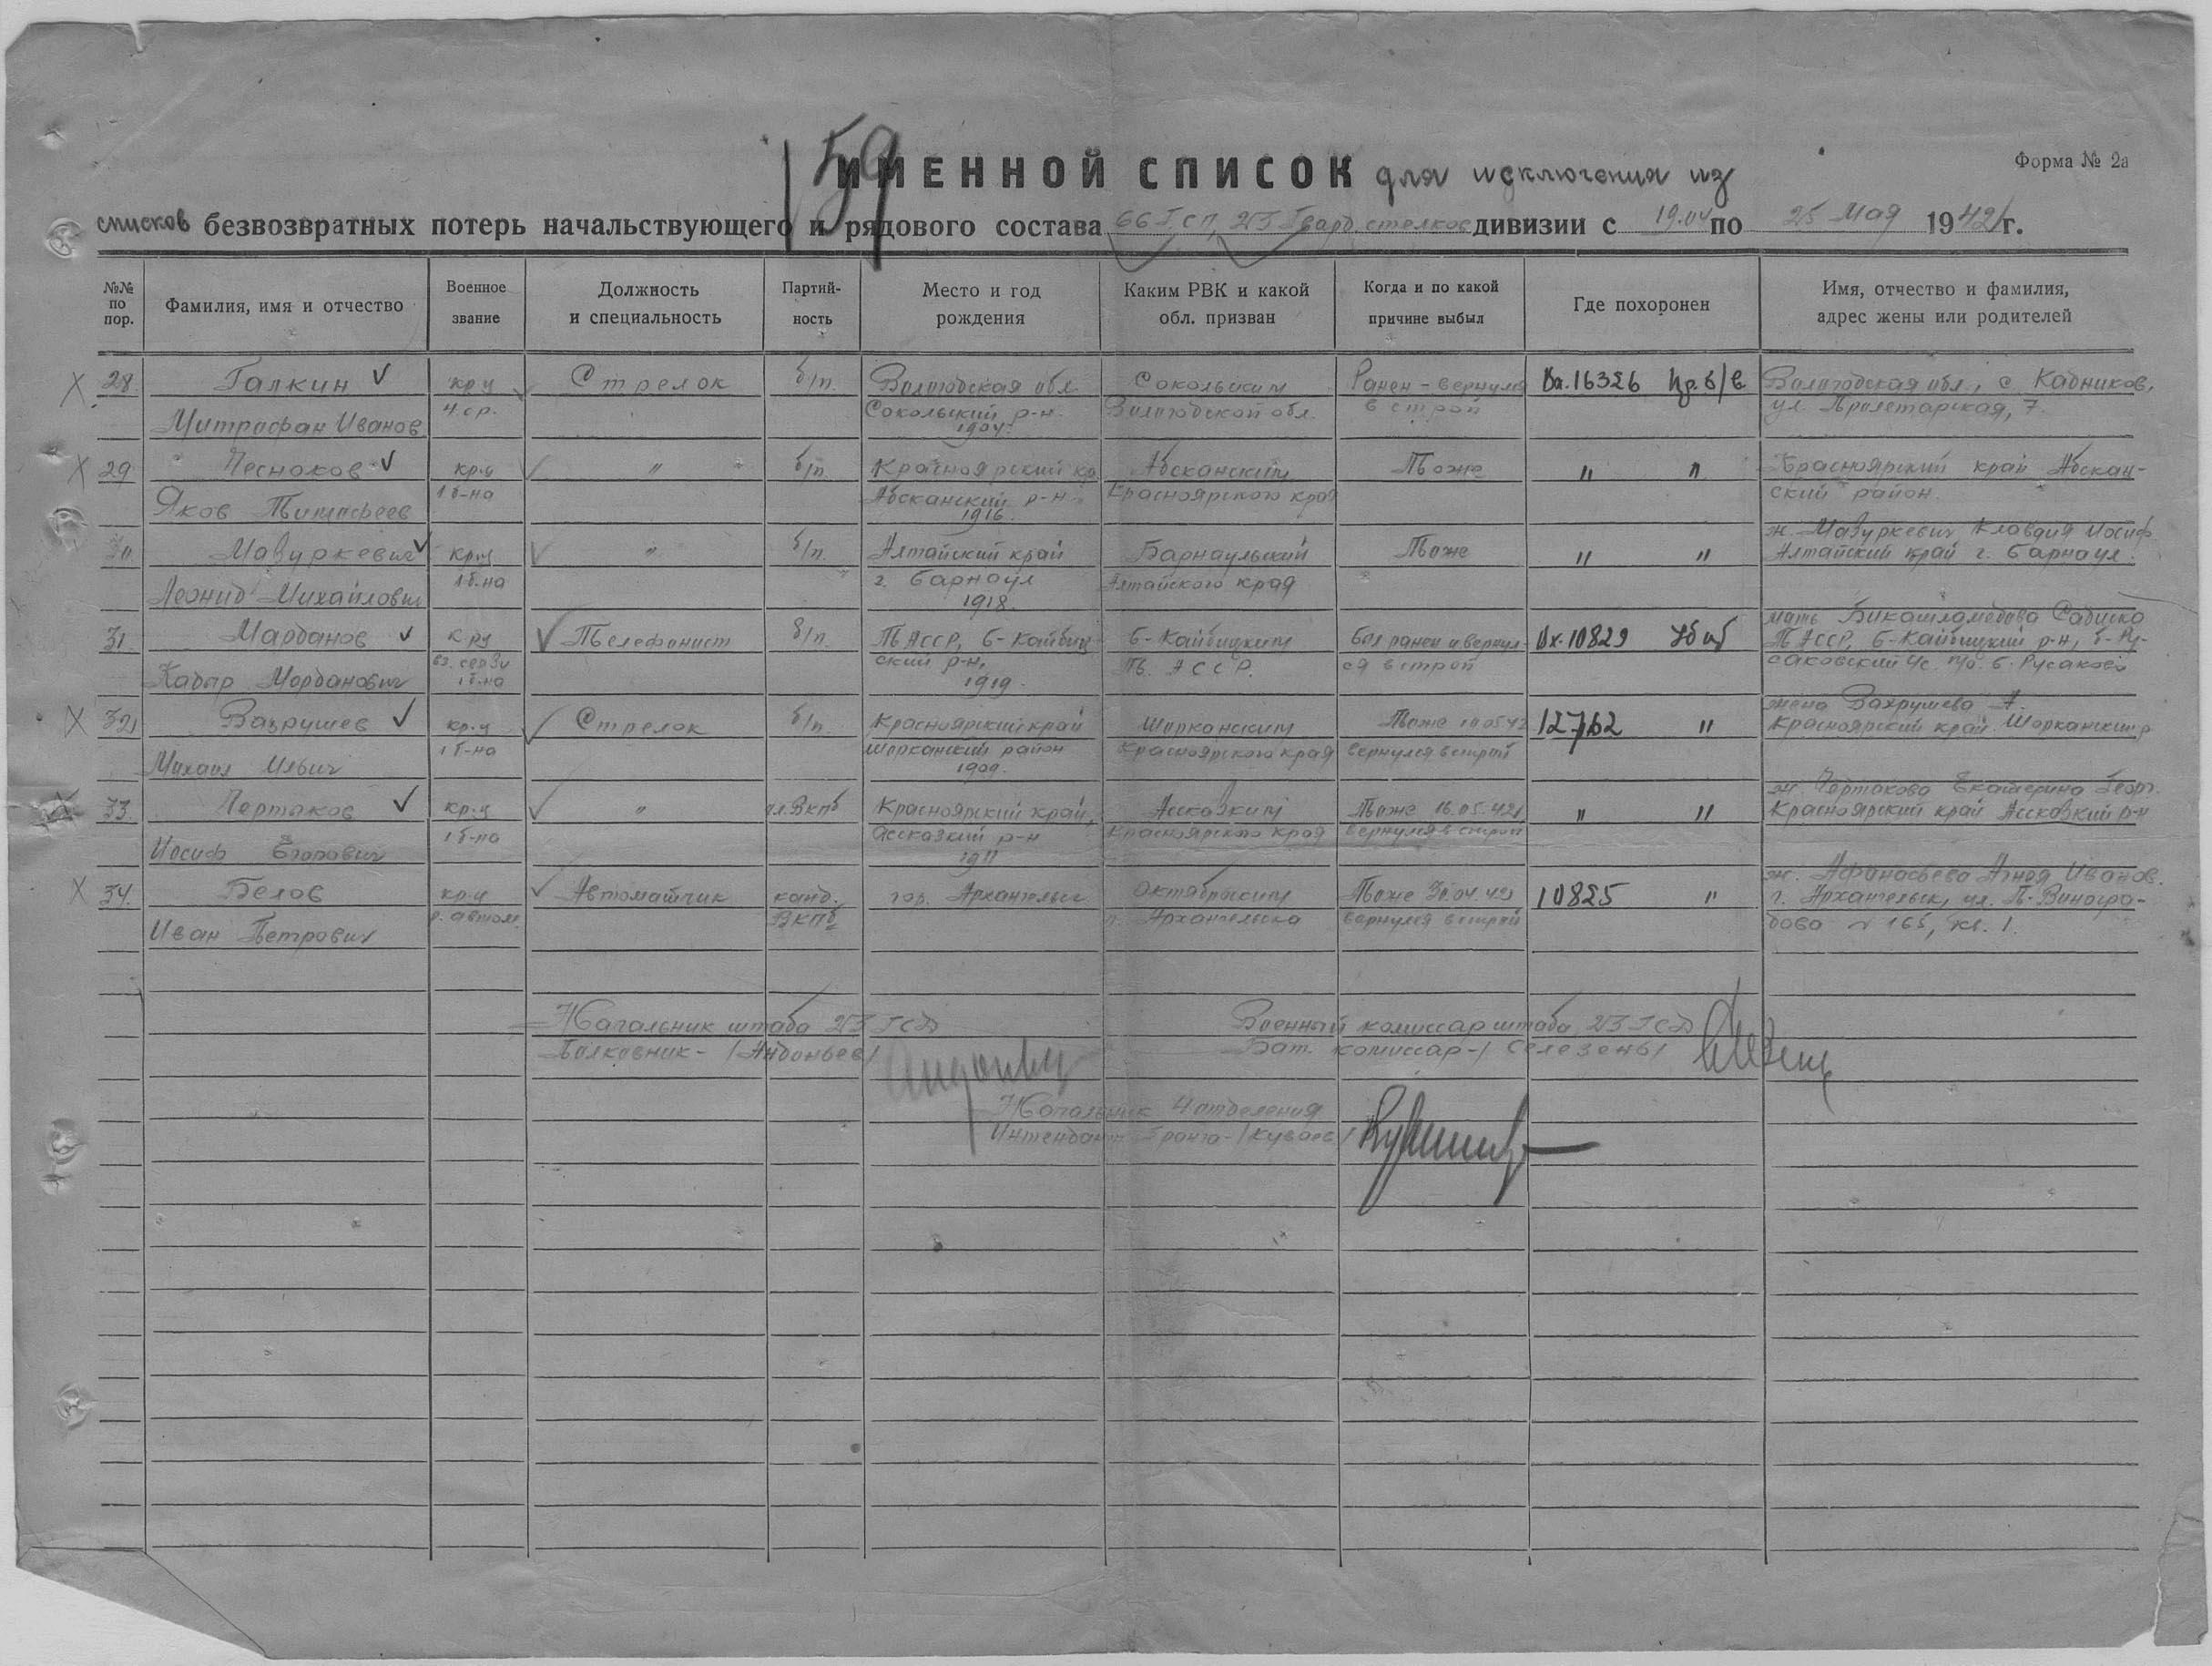 159
ИМЕННОЙ СПИСОК для исключения из
Форма № 2а
списков безвозвратных потерь начальствующего и рядового состава 66 ГСП, 23 Гвард. стрелков дивизии с 19.04 по 25 Мая 1942 г.
№№ по пор.
Фамилия, имя и отчество
Военное звание
Должность и специальность
Партий-ность
Место и год рождения
Каким РВК и какой обл. призван
Когда и по какой причине выбыл
Где похоронен
Имя, отчество и фамилия, адрес жены или родителей
28. Галкин кр-ц Стрелок б/п. Вологодская обл. Сокольским Ранен - вернулся Вх.16326 Вологодская обл., с. Кадников,
Митрофан Иванов Сокольский р-н. 1904. Вологодской обл. в строй ул. Пролетарская, 7.
29 Чесноков кр-ц " б/п. Красноярский кр. Абсканским Тоже " " Красноярский край Абскан-
Яков Тимофеев 1 б-на Абсканский р-н. 1916. Красноярского края ский район.
30 Мазуркевич кр-ц " б/п. Алтайский край Барнаульский Тоже " " ж. Мазуркевич Клавдия Иосиф.
Леонид Михайлович 1 б-на г. Барнаул 1918. Алтайского края Алтайский край г. Барнаул.
31. Марданов кр-ц Телефонист б/п. ТАССР, Б-Кайбиц- Б-Кайбицким Был ранен и вернул- Вх.10829 мать
Кадыр Марданович 1 б-на ский р-н, 1919. Т. АССР. ся в строй ТАССР, Б-Кайбицкий р-н, Б-Ру-
саковский с/с. п/о. Б. Русаково
32 Вахрушев кр-ц Стрелок б/п. Красноярский край Шарканским Тоже 12762 " жена Вахрушева А.
Михаил Ильич 1 б-на Шарканский район 1909. Красноярского края вернулся в строй Красноярский край Шарканский р
33. Чертаков кр-ц " чл. ВКПб Красноярский край, Асковским Тоже 16.05.42 " " ж. Чертакова Екатерина Георг.
Иосиф Егорович 1 б-на р-н 1911 Красноярского края вернулся в строй Красноярский край р-н
34. Белов кр-ц Автоматчик канд. ВКПб гор. Архангельск Октябрьским Тоже 30.04.42 10825 " ж. Афанасьева Агния Иванов.
Иван Петрович р. автом. г. Архангельска вернулся в строй г. Архангельск, ул. П. Виногра-
дова № 165, кв. 1.
Начальник штаба 23 ГСД
Полковник - /Андоньев/
Военный комиссар штаба 23 ГСД
Бат. комиссар - /Селезень/
Начальник 4 отделения
Интендант 3 ранга - /Куваев/